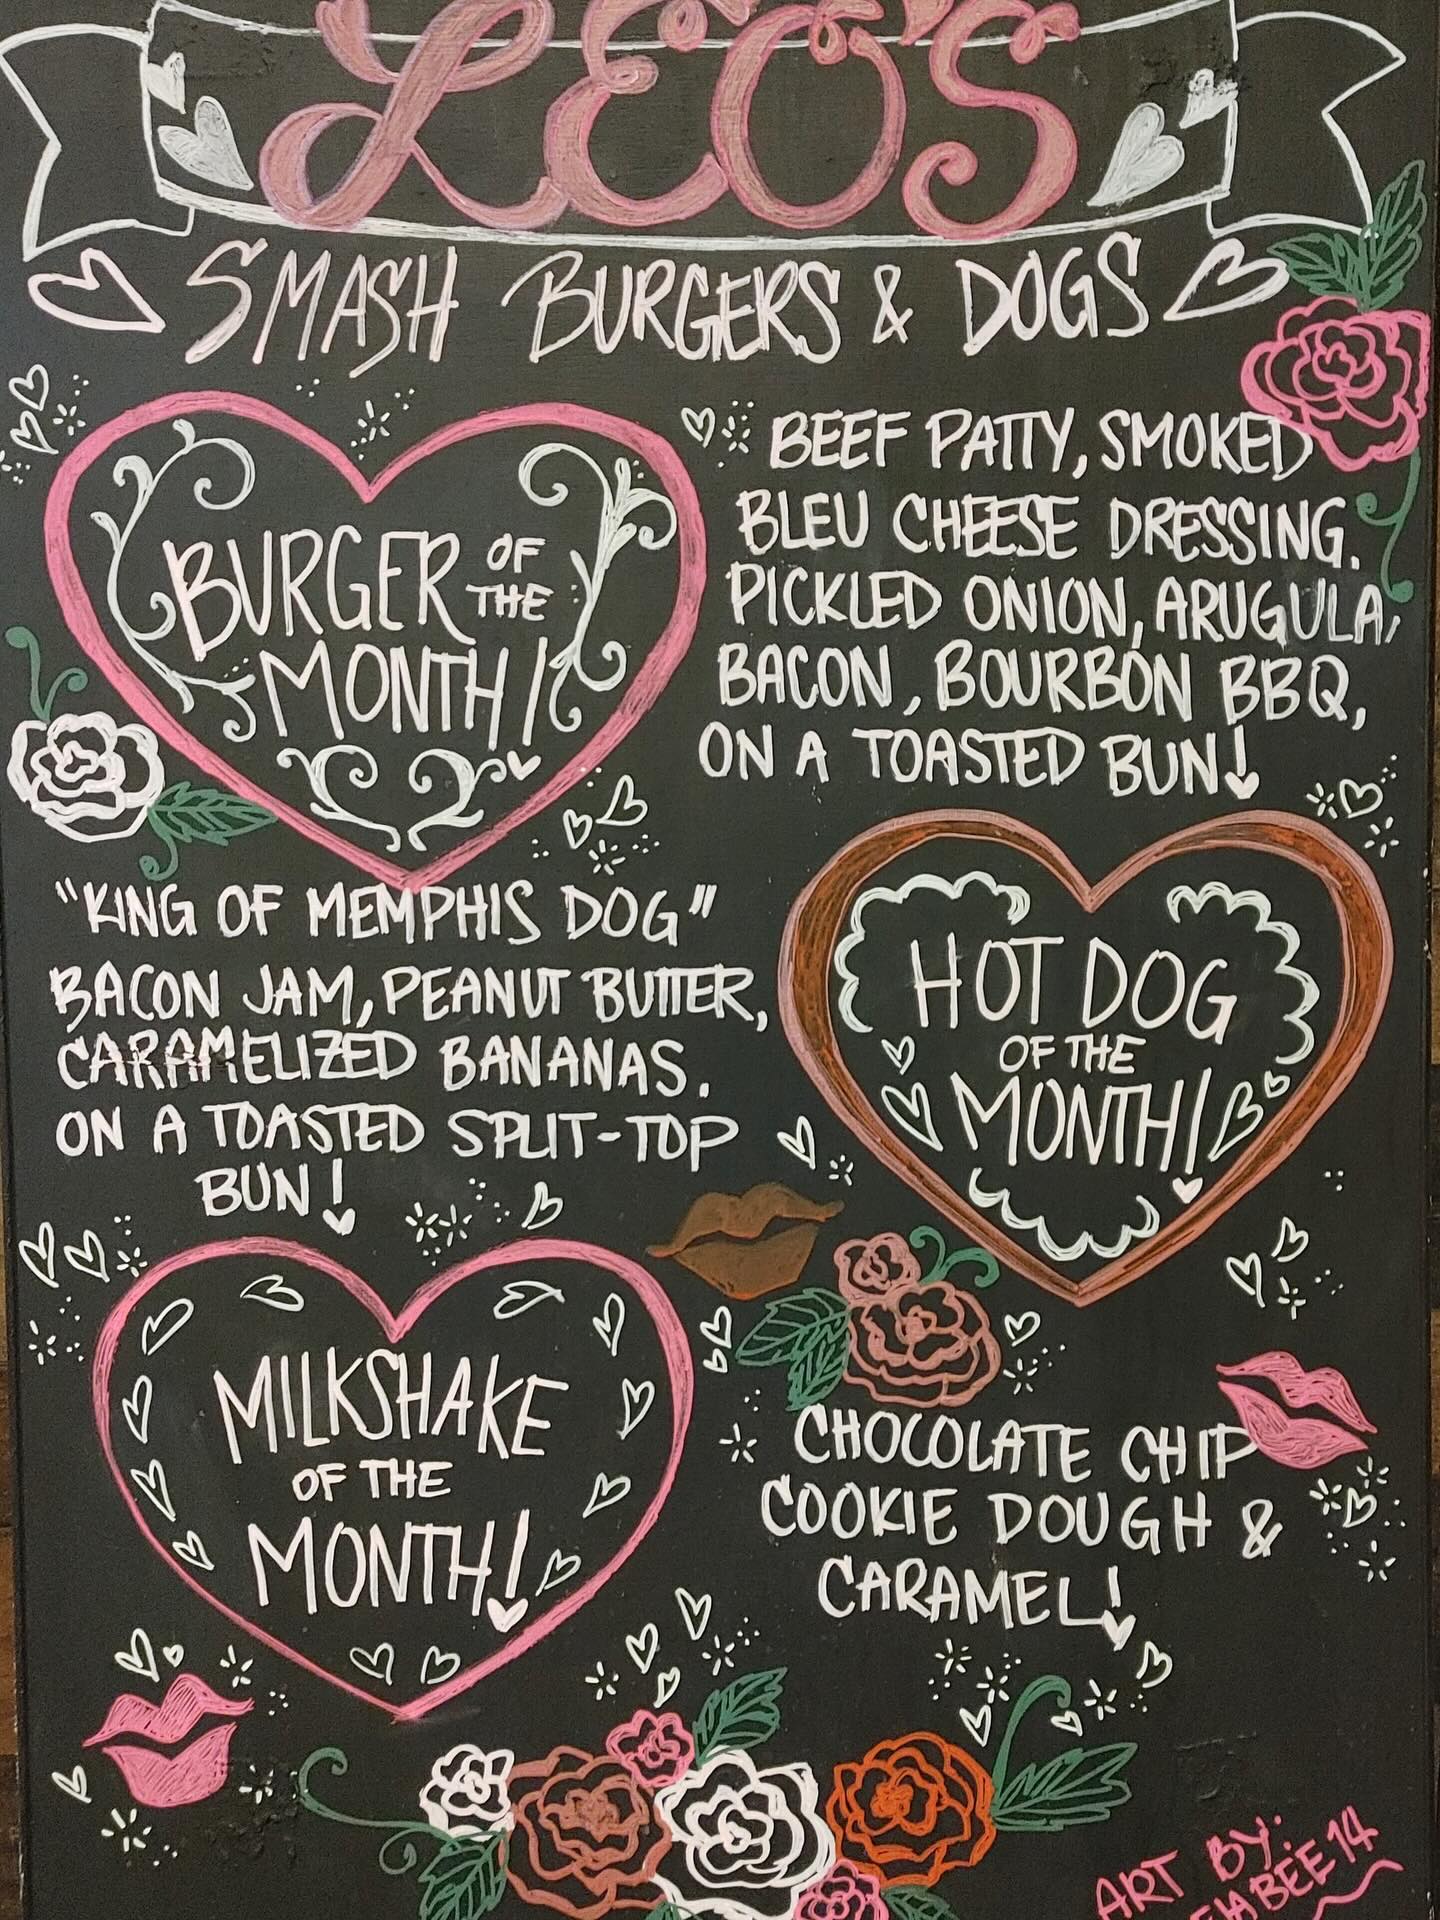 LEO'S
SMASH BURGERS & DOGS
BURGER OF THE
MONTH!
BEEF PATTY, SMOKED
BLEU CHEESE DRESSING.
PICKLED ONION, ARUGULA,
BACON, BOURBON BBQ,
ON A TOASTED BUN!
"KING OF MEMPHIS DOG"
BACON JAM, PEANUT BUTTER,
CARAMELIZED BANANAS.
ON A TOASTED SPLIT-TOP
BUN!
HOT DOG
OF THE
MONTH!
MILKSHAKE
OF THE
MONTH!
CHOCOLATE CHIP
COOKIE DOUGH &
CARAMEL!
ART BY: